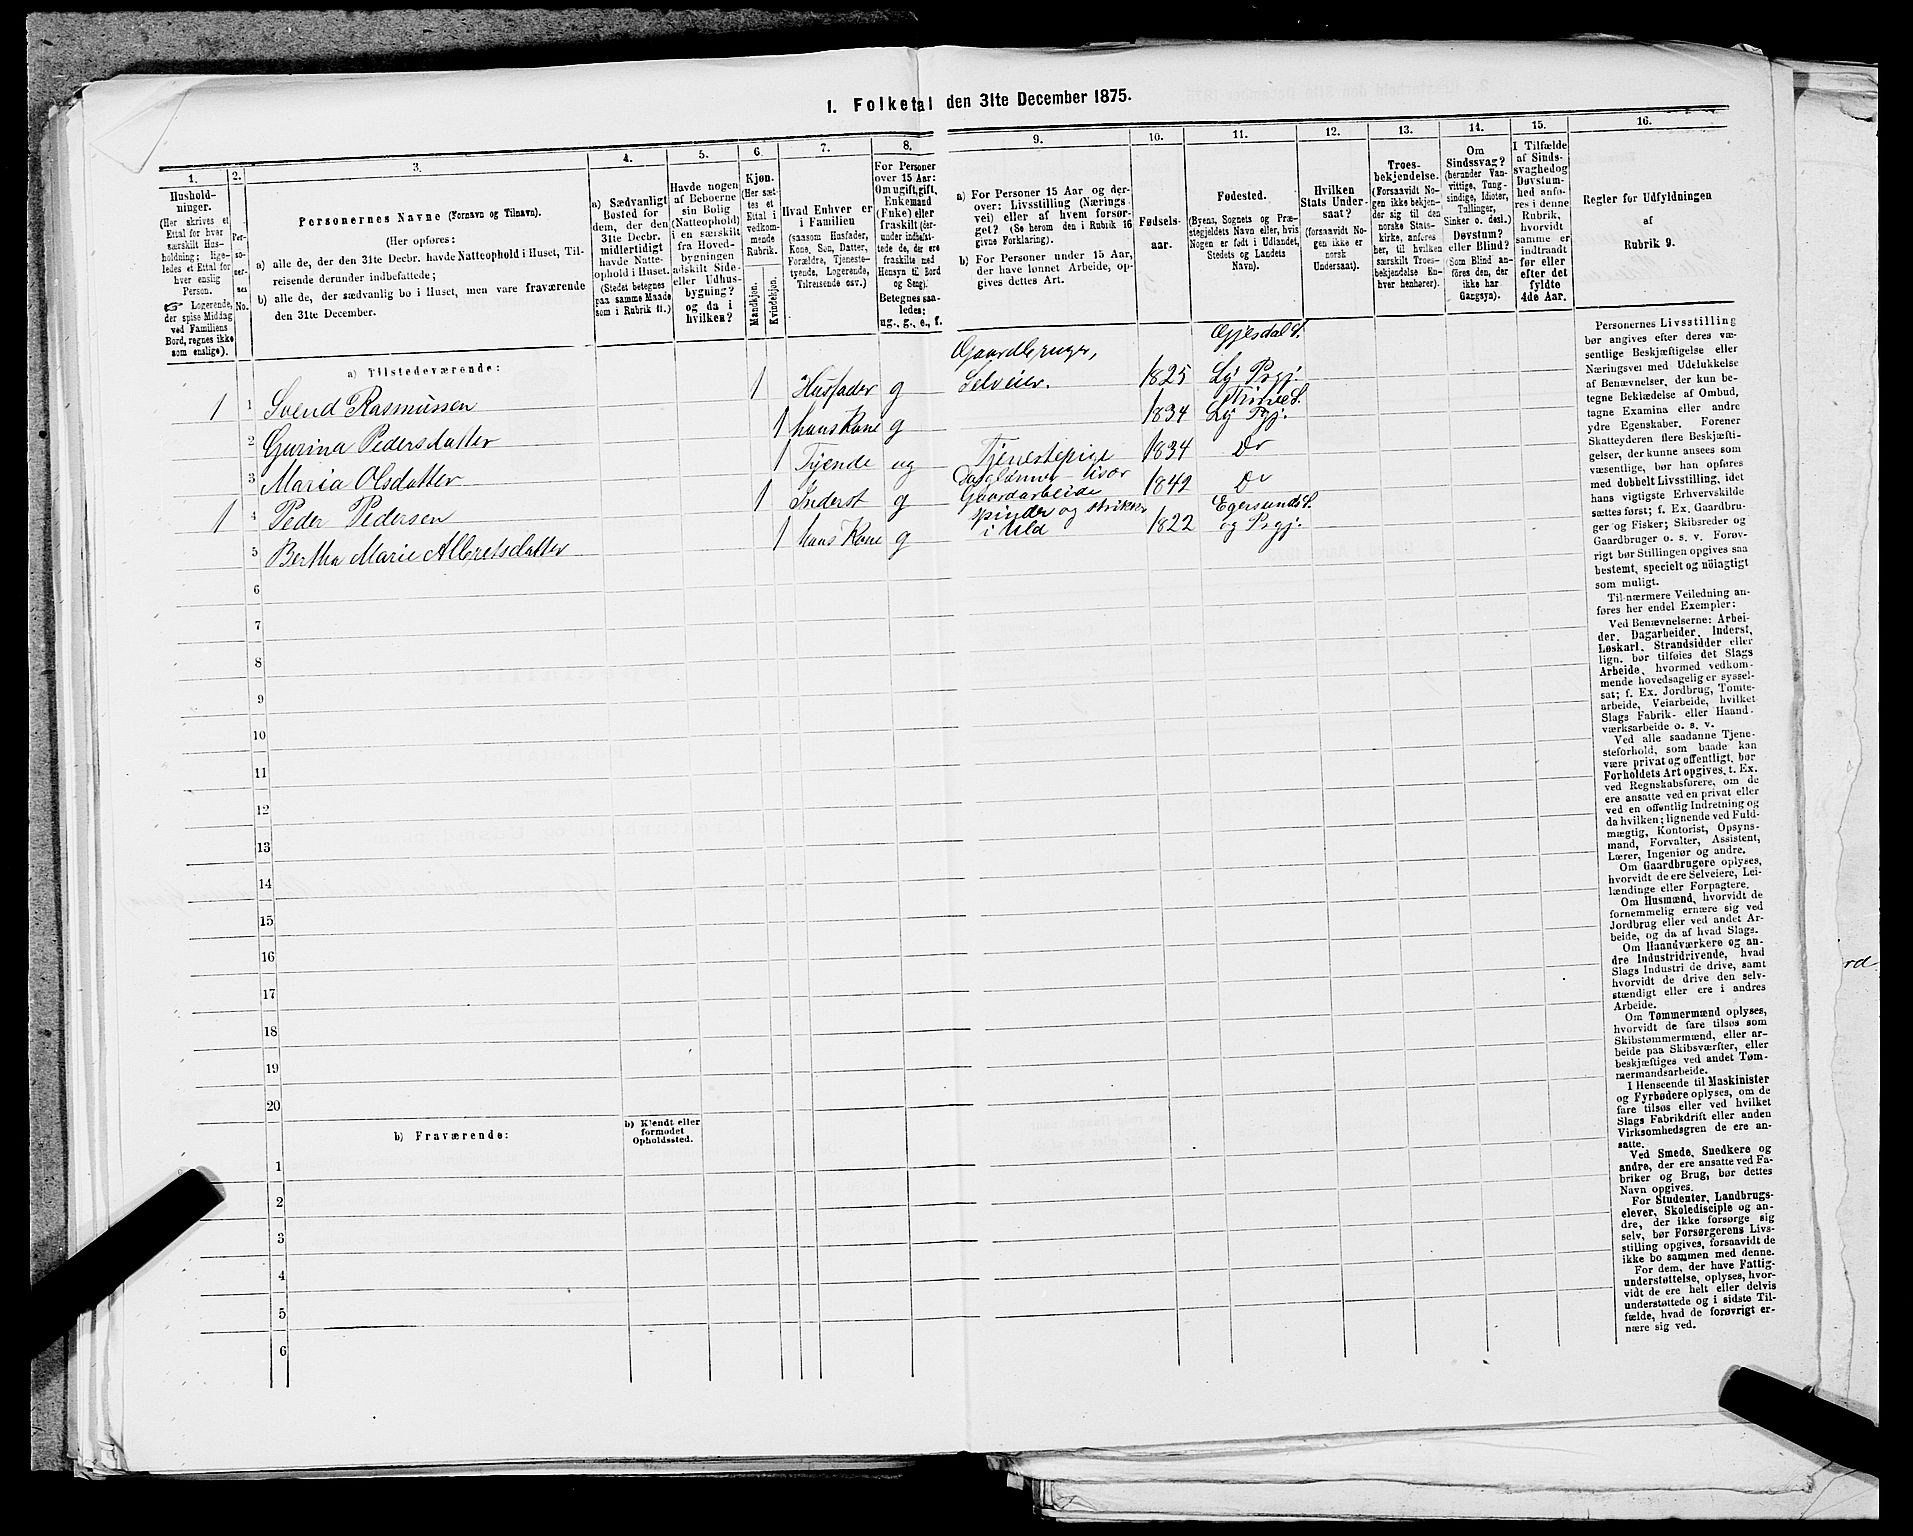 1. Folketal den 31te December 1875.
1.
2.
3.
4.
5.
6.
7.
8.
9.
10.
11.
12.
13.
14.
15.
16.
Hushold-
ninger.
(Her skrives et
Ettal for hver
særskilt Hus-
holdning; lige-
ledes et Ettal for
hver enslig
Person.
☞ Logerende,
der spise Middag
ved Familiens
Bord, regnes ikke
som enslige).
Per-
so-
ner-
nes
No.
Personernes Navne (Fornavn og Tilnavn).
(Her opføres:
a) alle de, der den 31te Decbr. havde Natteophold i Huset, Til-
reisende derunder indbefattede;
b) alle de, der sædvanlig bo i Huset, men vare fraværende
den 31te December.
a) Sædvanligt
Bosted for
dem, der den
31te Decbr.
midlertidigt
havde Natte-
ophold i Huset.
(Stedet betegnes
paa samme Maade
som i Rubrik 11.)
Havde nogen
af Beboerne
sin Bolig
(Natteophold)
i en særskilt
fra Hoved-
bygningen
adskilt Side-
eller Udhus-
bygning?
og da i
hvilken?
Kjøn.
(Her sæt-
tes et
Ettal i
vedkom-
mende
Rubrik.
Mandkjøn.
Kvindekjøn.
Hvad Enhver er
i Familien
(saasom Husfader,
Kone, Søn, Datter,
Forældre, Tjeneste-
tyende, Logerende,
Tilreisende osv.).
For Personer
over 15 Aar:
Om ugift, gift,
Enkemand
(Enke) eller
fraskilt (der-
under indbefat-
tede de, der ere
fraskilte med
Hensyn til Bord
og Seng).
Betegnes saa-
ledes:
ug., g., e., f.
a) For Personer 15 Aar og der-
over: Livsstilling (Nærings-
vei) eller af hvem forsør-
get? (Se herom den i Rubrik 16
givne Forklaring).
b) For Personer under 15 Aar,
der have lønnet Arbeide, op-
gives dettes Art.
Fødsels-
aar.
Fødested.
(Byens, Sognets og Præ-
stegjeldets Navn eller, hvis
Nogen er født i Udlandet,
Stedets og Landets
Navn).
Hvilken
Stats Under-
saat?
(forsaavidt No-
gen ikke er
norsk
Undersaat).
Troes-
bekjendelse.
(Forsaavidt No-
gen ikke bekjen-
der sig til den
norske Stats-
kirke, anføres
her, til hvilken
særskilt Troes-
bekjendelse En-
hver henhører).
Om
Sindssvag?
(herunder Van-
vittige, Tung-
sindige, Idioter,
Tullinger,
Sinker o. desl.)
Døvstum?
eller Blind?
(Som Blind an-
føres den, der
ikke har
Gangsyn).
I Tilfælde
af Sinds-
svaghed og
Døvstum-
hed anfø-
res i denne
Rubrik,
hvorvidt
samme er
indtraadt
før eller
efter det
fyldte
4de Aar.
Regler for Udfyldningen
af
Rubrik 9.
a) Tilstedeværende:
1 1 Svend Rasmussen 1 Husfader g Gaardbruger, Selveier. 1825 Gjesdal S. Ly Prgj.
2 Gurina Pedersdatter 1 hans Kone g 1834 Ly Prgj.
3 Maria Olsdatter 1 Tyende ug Tjenestepige 1834 Do
1 4 Peder Pedersen 1 Inderst g Gaardarbeide 1842 Do
5 Bertha Marie Albretsdatter 1 hans Kone g spinder og strikker i Uld 1822 Egersunds S. og Prgj.
6
7
8
9
10
11
12
13
14
15
16
17
18
19
20
b) Fraværende:
b) Kjendt eller
formodet
Opholdssted.
1
2
3
4
5
6
Personernes Livsstilling
bør angives efter deres væ-
sentlige Beskjæftigelse eller
Næringsvei med Udelukkelse
af Benævnelser, der kun be-
tegne Beklædelse af Ombud,
tagne Examina eller andre
ydre Egenskaber. Forener
Skatteyderen flere Beskjæfti-
gelser, der kunne ansees som
væsentlige, bør han opføres
med dobbelt Livsstilling, idet
hans vigtigste Erhvervskilde
sættes først; f. Ex. Gaardbru-
ger og Fisker; Skibsreder og
Gaardbruger o. s. v. Forøv-
rigt bør Stillingen opgives saa
bestemt, specielt og nöiagtigt
som muligt.
Til nærmere Veiledning an-
føres her endel Exempler:
Ved Benævnelserne: Arbei-
der, Dagarbeider, Inderst,
Løskarl, Strandsidder eller
lign. bør tilføies det Slags
Arbeide, hvormed vedkom-
mende hovedsagelig er syssel-
sat; f. Ex. Jordbrug, Tomte-
arbeide, Veiarbeide, hvilket
Slags Fabrik- eller Haand-
værksarbeide o. s. v.
Ved alle saadanne Tjene-
steforhold, som baade kan
være privat og offentligt, bør
Forholdets Art opgives, t. Ex.
ved Regnskabsførere, om de
ere ansatte ved en privat eller
ved en offentlig Indretning og
da hvilken; lignende ved Fuld-
mægtig, Kontorist, Opsyns-
mand, Forvalter, Assistent,
Lærer, Ingeniør og andre.
Om Gaardbrugere oplyses,
hvorvidt de ere Selveiere, Lei-
lændinge eller Forpagtere.
Om Husmænd, hvorvidt de
fornemmelig ernære sig ved
Jordbrug eller ved andet Ar-
beide, og da af hvad Slags.
Om Haandværkere og an-
dre Industridrivende, hvad
Slags Industri de drive, samt
hvorvidt de drive den selv-
stændigt eller ere i andres
Arbeide.
Om Tømmermænd oplyses,
hvorvidt de fare tilsøs som
Skibstømmermænd, eller ar-
beide paa Skibsværfter, eller
beskjæftiges ved andet Tøm-
mermandsarbeide.
I Henseende til Maskinister
og Fyrbødere oplyses, om de
fare tilsøs eller ved hvilket
Slags Fabrikdrift eller anden
Virksomhedsgren de ere an-
satte.
Ved Smede, Snedkere og
andre, der ere ansatte ved Fa-
briker og Brug, bør dettes
Navn opgives.
For Studenter, Landbrugs-
elever, Skoledisciple og an-
dre, der ikke forsørge sig
selv, bør Forsørgerens Livs-
stilling opgives, forsaavidt de
ikke bo sammen med denne.
For dem, der have Fattig-
understøttelse, oplyses, hvor-
vidt de ere helt eller delvis
understøttede og i sidste Til-
fælde, hvad de forøvrigt er-
nære sig ved.